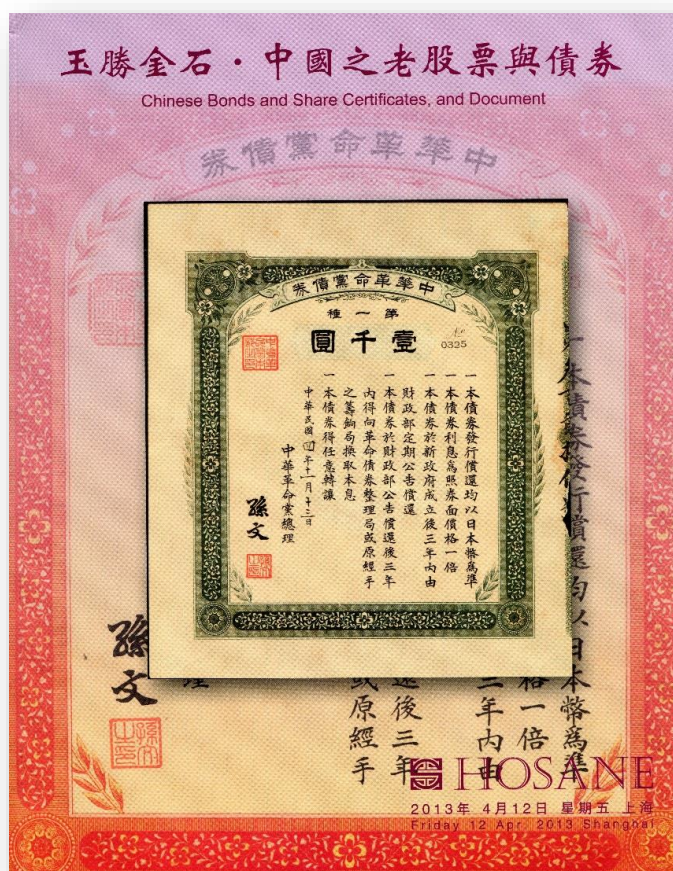 玉勝金石·中國之老股票與債券
Chinese Bonds and Share Certificates, and Document
中華革命黨債券
中華革命黨債券
第一種
壹千圓
No
0325
一本債券發行償還均以日本幣爲準
一本債券利息爲照券面價格一倍
一本債券於新政府成立後三年內由
財政部定期公告償還
一本債券於財政部公告償還後三年
內得向革命債券整理局或原經手
之籌餉局換取本息
一本債券得任意轉讓
中華民國四年十一月十三日
中華革命黨總理
孫文
本債券發行償還均以日本幣爲準
格一倍
三年內由
後三年
或原經手
理
孫文
HOSANE
2013年 4月12日 星期五 上海
Friday 12 Apr. 2013 Shanghai